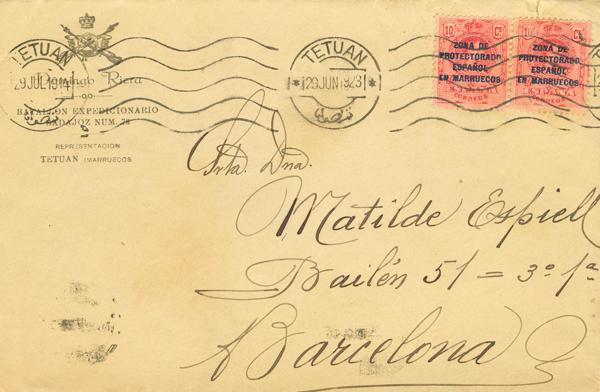 TETUAN
TETUAN
29 JUN 1923
10 Cs
ZONA DE
PROTECTORADO
ESPAÑOL
EN MARRUECOS
CORREOS
10 Cs
ZONA DE
PROTECTORADO
ESPAÑOL
EN MARRUECOS
CORREOS
Domingo Riera
BATALLON EXPEDICIONARIO
BADAJOZ NUM. 73
REPRESENTACION
TETUAN (MARRUECOS
Srta. Dna.
Matilde Espiell
Bailén 51 = 3º 1ª
Barcelona